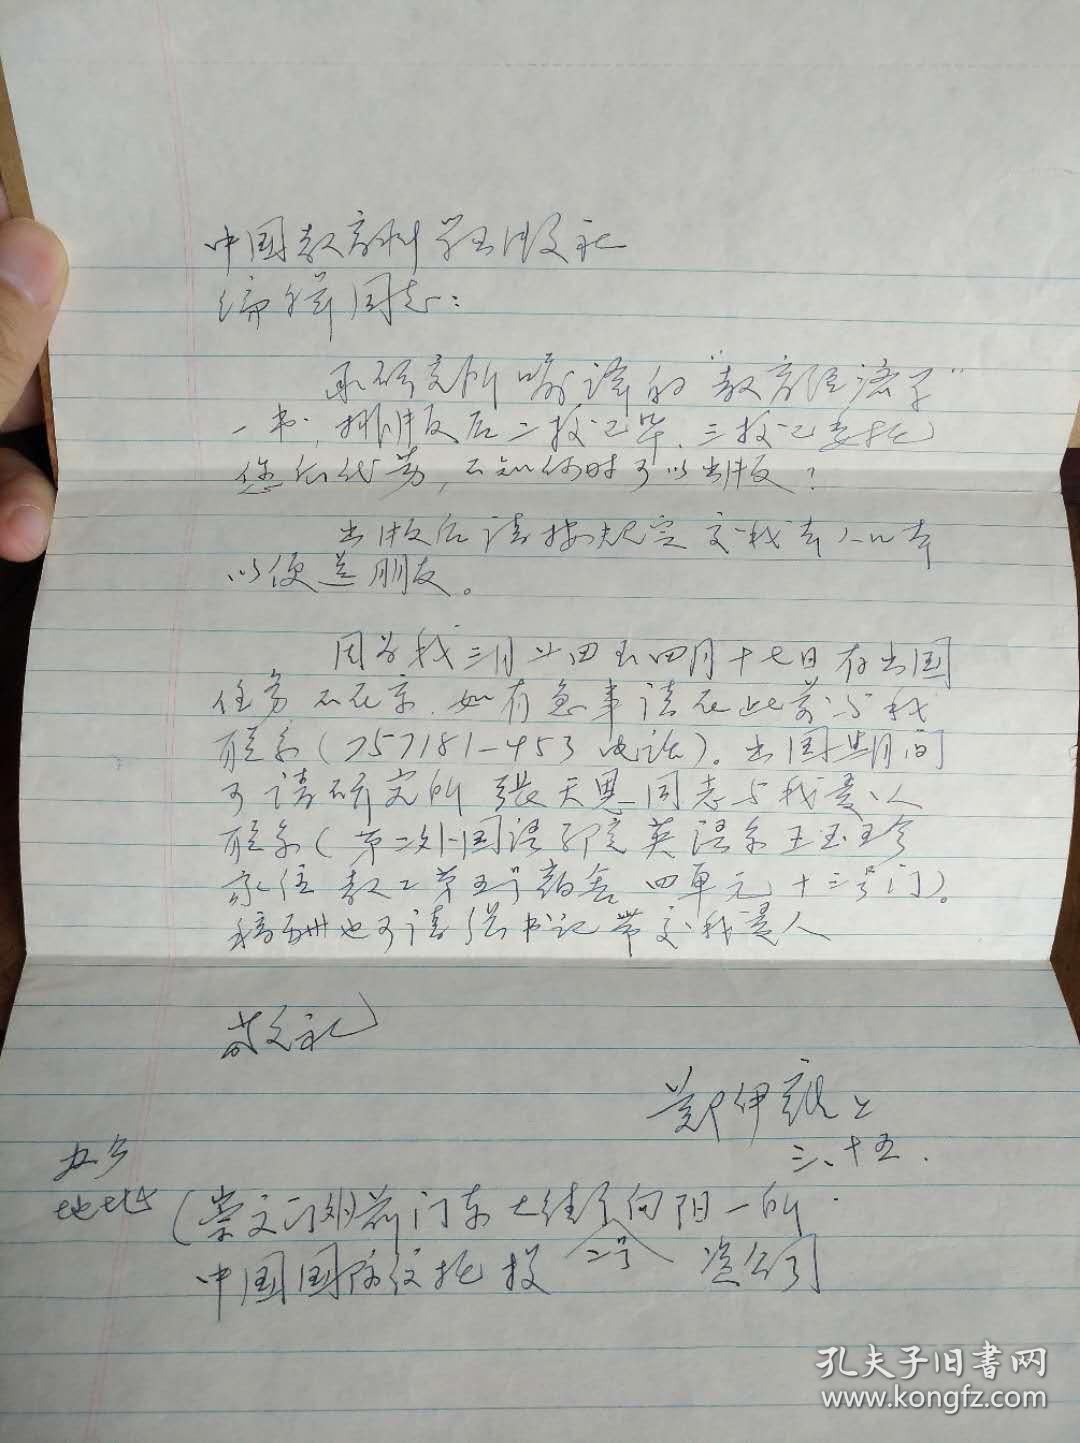 中国教育科学出版社
编辑同志：
承研究所嘱译的“教育经济学”
一书，排版后二校已毕，三校已委托
您们代劳，不知何时可以出版？
出版后请按规定交我本人
以便送朋友。
因为我三月廿四至四月十七日有出国
任务不在京，如有急事请在此前与我
联系（757181-453电话）。出国期间
可请研究所张天恩同志与我爱人
联系（第二外国语学院英语系王玉珍
家住教工第五号宿舍四单元十三号门）。
稿酬也可请张书记带交我爱人
敬礼
郑伊雍上
三、十五.
办公
地址（崇文门外前门东大街向阳一所
二号
中国国际信托投资公司
孔夫子旧书网
www.kongfz.com